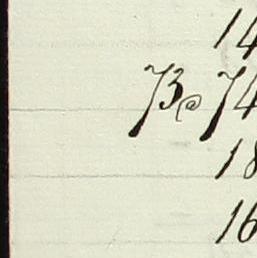 14
73@74
18
16